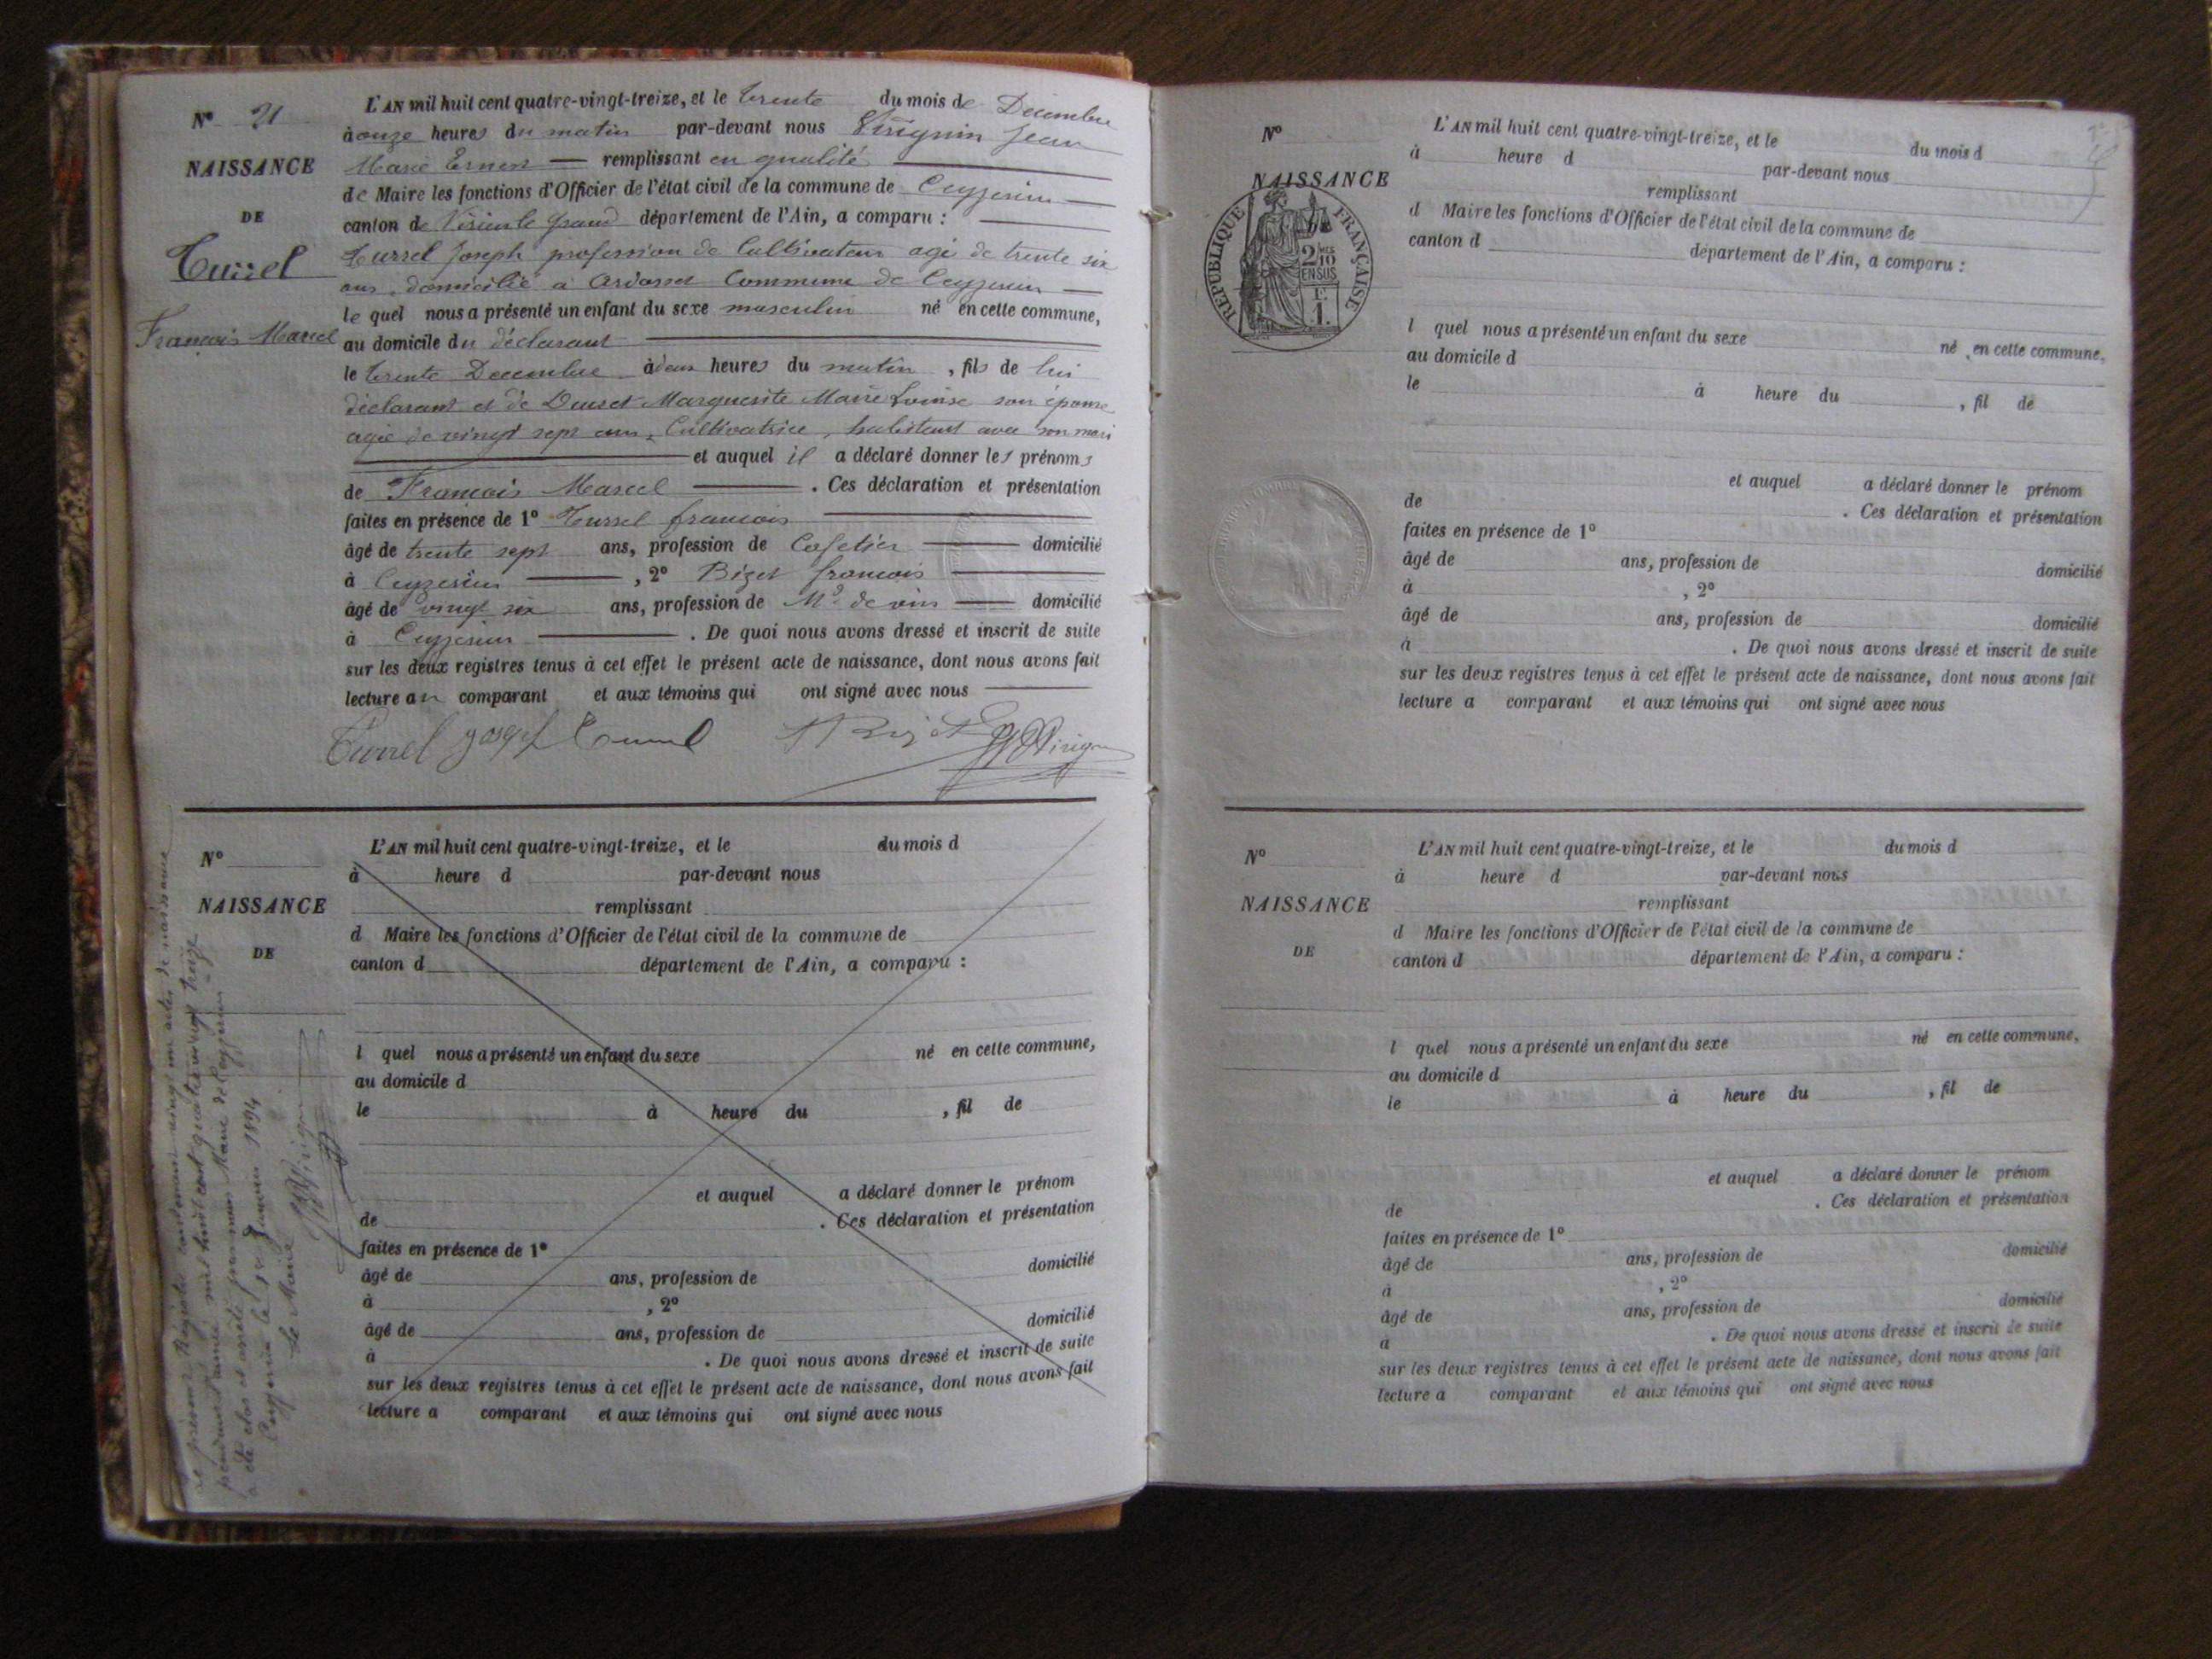 N° 21
NAISSANCE
DE
Turrel
François Marcel
L'AN mil huit cent quatre-vingt-treize, et le trente du mois de Décembre
à onze heures du matin par-devant nous Virignin Jean
Marie Ernest remplissant en qualité
de Maire les fonctions d'Officier de l'état civil de la commune de Ceyzerieu
canton de Virieu le grand département de l'Ain, a comparu :
Turrel Joseph profession de Cultivateur agé de trente six
ans, domicilié à Ardosset Commune de Ceyzerieu
le quel nous a présenté un enfant du sexe masculin né en cette commune,
au domicile du déclarant
le trente Decembre à deux heures du matin, fils de lui
déclarant et de Marguerite Marie Louise son épouse
agée de vingt sept ans, Cultivatrice, habitant avec son mari
et auquel il a déclaré donner les prénoms
de François Marcel. Ces déclaration et présentation
faites en présence de 1° Turrel françois
âgé de trente sept ans, profession de Cafetier domicilié
à Ceyzerieu, 2° Bizet françois
âgé de vingt six ans, profession de Md de vin domicilié
à Ceyzerieu. De quoi nous avons dressé et inscrit de suite
sur les deux registres tenus à cet effet le présent acte de naissance, dont nous avons fait
lecture au comparant et aux témoins qui ont signé avec nous
Turrel Josepf Turrel
N°
NAISSANCE
DE
L'AN mil huit cent quatre-vingt-treize, et le du mois d
à heure d par-devant nous
remplissant
d Maire les fonctions d'Officier de l'état civil de la commune de
canton d département de l'Ain, a comparu :
l quel nous a présenté un enfant du sexe né en cette commune,
au domicile d
le à heure du , fil de
et auquel a déclaré donner le prénom
de . Ces déclaration et présentation
faites en présence de 1°
âgé de ans, profession de domicilié
à , 2°
âgé de ans, profession de domicilié
à . De quoi nous avons dressé et inscrit de suite
sur les deux registres tenus à cet effet le présent acte de naissance, dont nous avons fait
lecture a comparant et aux témoins qui ont signé avec nous
Le présent Registre contenant vingt un actes de naissance
pendant l'année mil huit cent quatre vingt treize
a été clos et arrêté par nous Maire de Ceyzerieu
Ceyzerieu le 1er Janvier 1894
Le Maire
N°
NAISSANCE
RÉPUBLIQUE FRANÇAISE
2 10
EN SUS
L'AN mil huit cent quatre-vingt-treize, et le du mois d
à heure d par-devant nous
remplissant
d Maire les fonctions d'Officier de l'état civil de la commune de
canton d département de l'Ain, a comparu :
l quel nous a présenté un enfant du sexe né en cette commune,
au domicile d
le à heure du , fil de
et auquel a déclaré donner le prénom
de . Ces déclaration et présentation
faites en présence de 1°
âgé de ans, profession de domicilié
à , 2°
âgé de ans, profession de domicilié
à . De quoi nous avons dressé et inscrit de suite
sur les deux registres tenus à cet effet le présent acte de naissance, dont nous avons fait
lecture a comparant et aux témoins qui ont signé avec nous
N°
NAISSANCE
DE
L'AN mil huit cent quatre-vingt-treize, et le du mois d
à heure d par-devant nous
remplissant
d Maire les fonctions d'Officier de l'état civil de la commune de
canton d département de l'Ain, a comparu :
l quel nous a présenté un enfant du sexe né en cette commune,
au domicile d
le à heure du , fil de
et auquel a déclaré donner le prénom
de . Ces déclaration et présentation
faites en présence de 1°
âgé de ans, profession de domicilié
à , 2°
âgé de ans, profession de domicilié
à . De quoi nous avons dressé et inscrit de suite
sur les deux registres tenus à cet effet le présent acte de naissance, dont nous avons fait
lecture a comparant et aux témoins qui ont signé avec nous